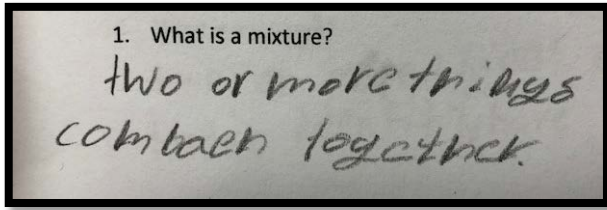 1. What is a mixture?
two or more things
combaen together.